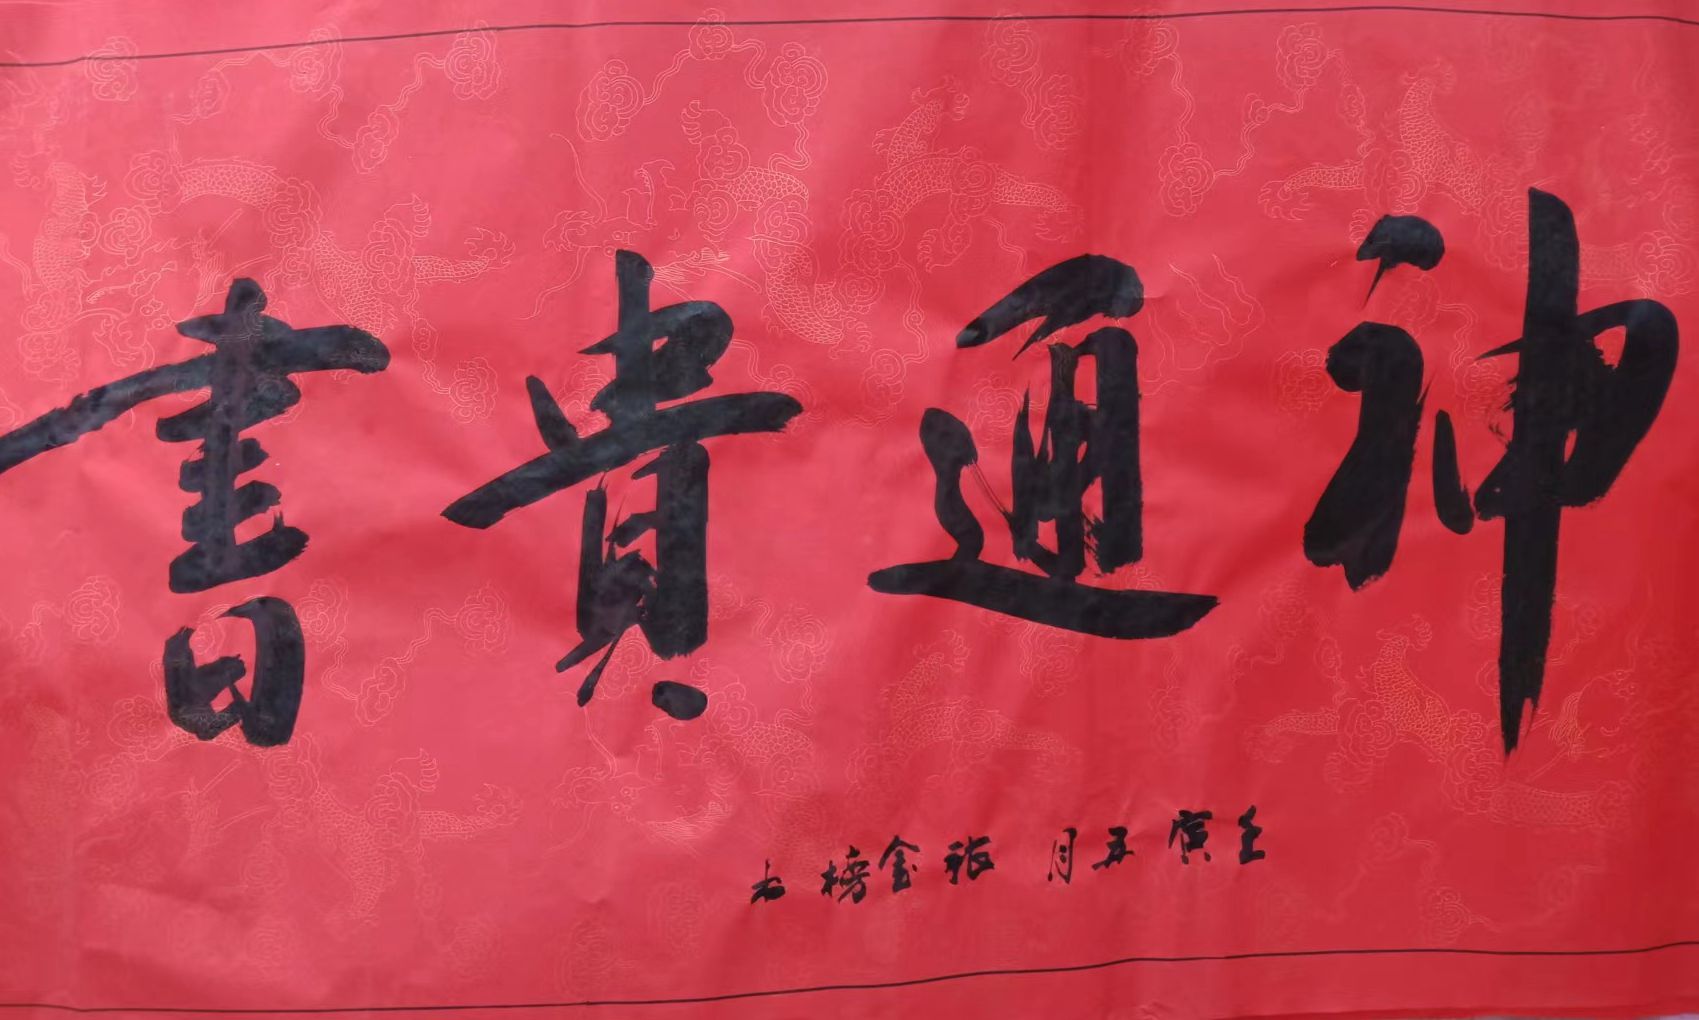 神通貴書
壬寅五月 張金榜书